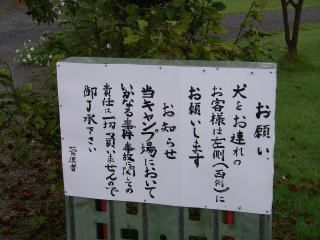 お願い
犬をお連れの
お客様は左側(西側)に
お願いします
お知らせ
当キャンプ場において
いかなる事件事故に関しての
責任は一切負いませんので
御了承下さい
管理者